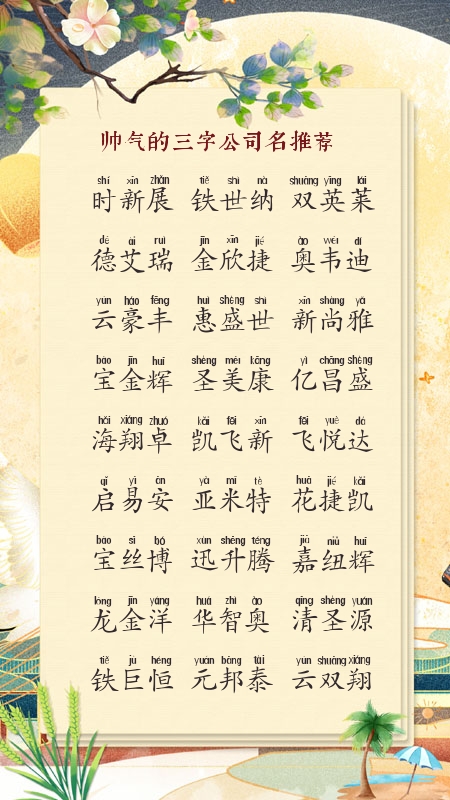 帅气的三字公司名推荐
shí xīn zhǎn tiě shì nà shuāng yīng lái
时新展 铁世纳 双英莱
dé ài ruì jīn xīn jié ào wéi dí
德艾瑞 金欣捷 奥韦迪
yún háo fēng huì shèng shì xīn shàng yǎ
云豪丰 惠盛世 新尚雅
bǎo jīn huī shèng měi kāng yì chāng shèng
宝金辉 圣美康 亿昌盛
hǎi xiáng zhuó kǎi fēi xīn fēi yuè dá
海翔卓 凯飞新 飞悦达
qǐ yì ān yà mǐ tè huā jié kǎi
启易安 亚米特 花捷凯
bǎo sī bó xùn shēng téng jiā niǔ huī
宝丝博 迅升腾 嘉纽辉
lóng jīn yáng huá zhì ào qīng shèng yuán
龙金洋 华智奥 清圣源
tiě jù héng yuán bāng tài yún shuāng xiáng
铁巨恒 元邦泰 云双翔